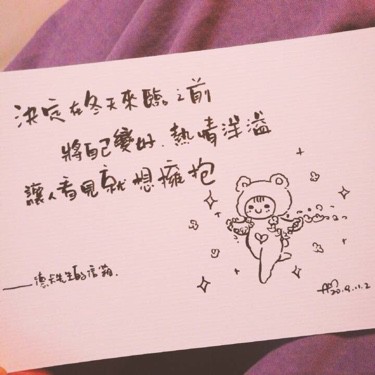 決定在冬天來臨之前
將自己變好、熱情洋溢
讓人看見就想擁抱
2019.11.2